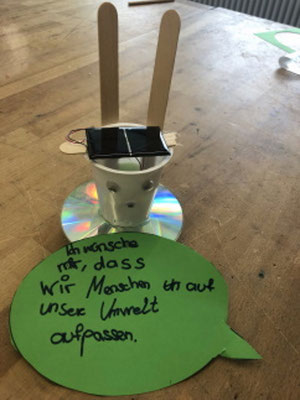 Ich wünsche
mir, dass
Wir Menschen
auf
unser Umwelt
aufpassen.